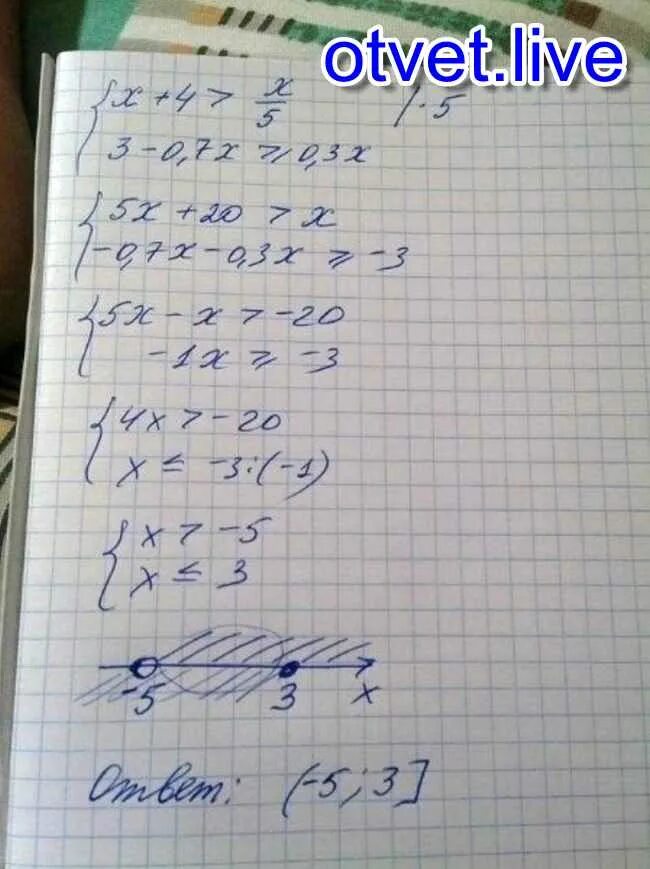 otvet.live
{ x + 4 > x/5 | · 5
3 - 0,7x ≥ 0,3x
{ 5x + 20 > x
-0,7x - 0,3x ≥ -3
{ 5x - x > -20
-1x ≥ -3
{ 4x > -20
x ≤ -3:(-1)
{ x > -5
x ≤ 3
-5 3 x
Ответ: (-5; 3]